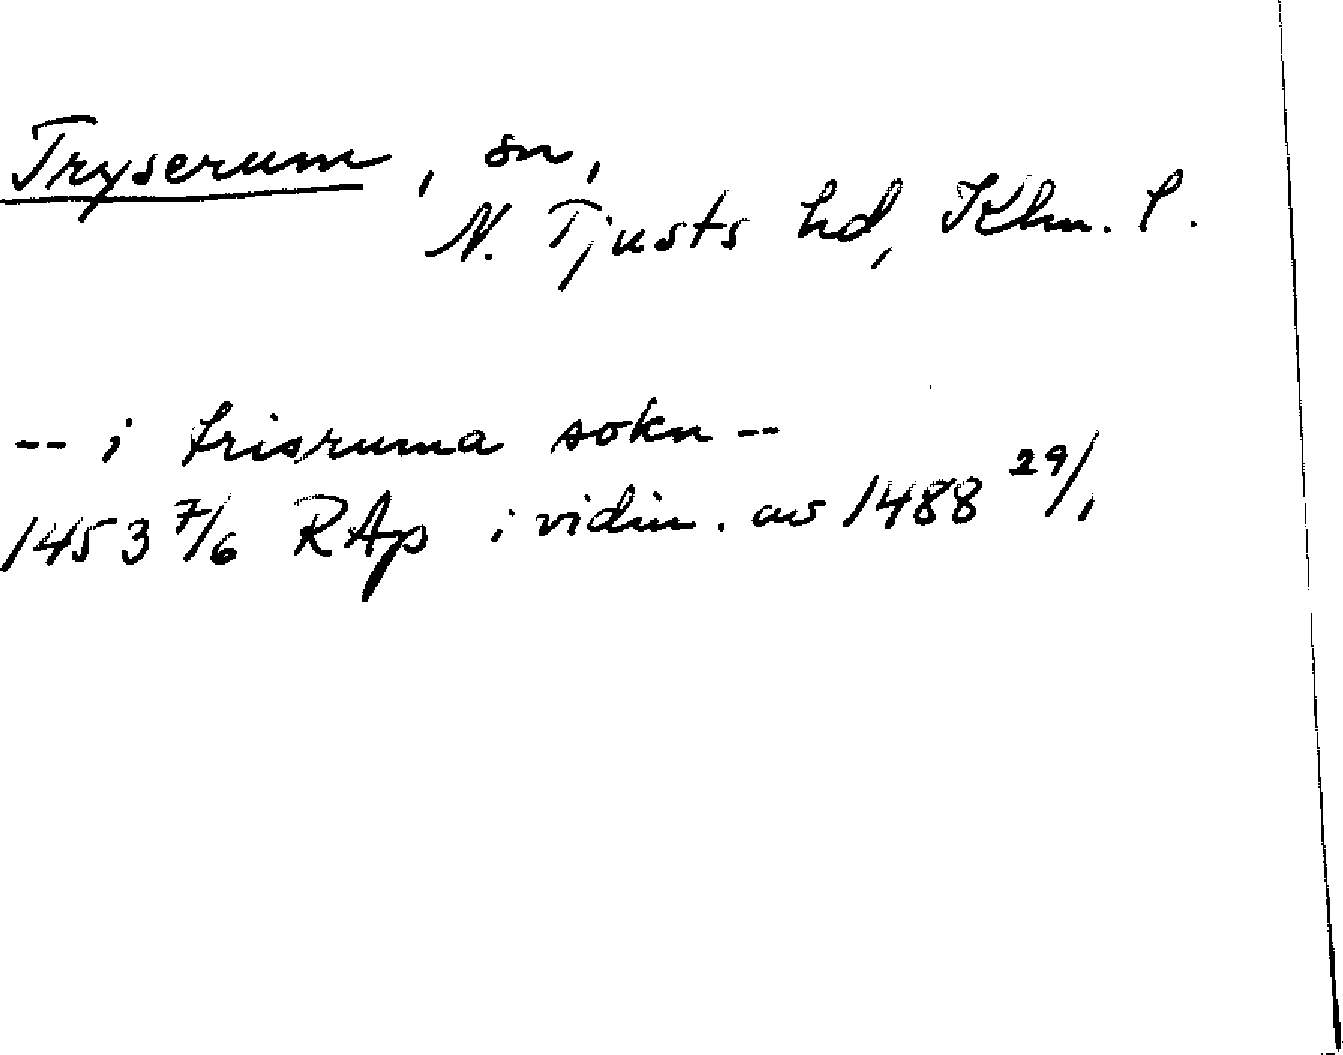 Tryserum, sn,
N. Tjusts hd, Klm. l.
-- i trisruma sokn --
1453 7/6 RAp i vidim. av 1488 29/1